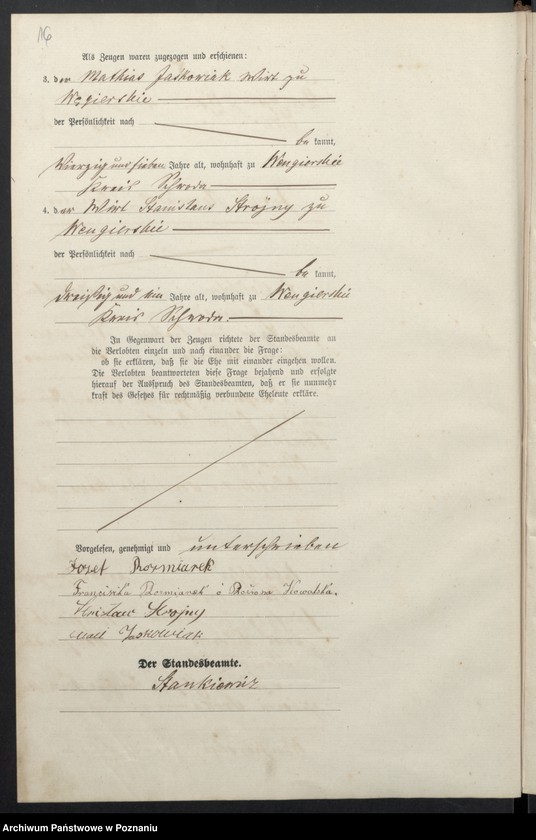 16
Als Zeugen waren zugezogen und erschienen:
3. der Mathias Jaskowiak Wirt zu
Wegierskie
der Persönlichkeit nach
be kannt,
Vierzig und sieben Jahre alt, wohnhaft zu Wengierskie
Kreis Schroda
4. der Wirt Stanislaus Strojny zu
Wengierskie
der Persönlichkeit nach
be kannt,
dreißig und ein Jahre alt, wohnhaft zu Wengierskie
Kreis Schroda
In Gegenwart der Zeugen richtete der Standesbeamte an
die Verlobten einzeln und nach einander die Frage:
ob sie erklären, daß sie die Ehe mit einander eingehen wollen.
Die Verlobten beantworteten diese Frage bejahend und erfolgte
hierauf der Ausspruch des Standesbeamten, daß er sie nunmehr
kraft des Gesetzes für rechtmäßig verbundene Eheleute erkläre.
Vorgelesen, genehmigt und unterschrieben
Jozef Rozmiarek
Franciszka Rozmiarek
Strojny
Jaskowiak
Der Standesbeamte.
Stankiewicz
Archiwum Państwowe w Poznaniu